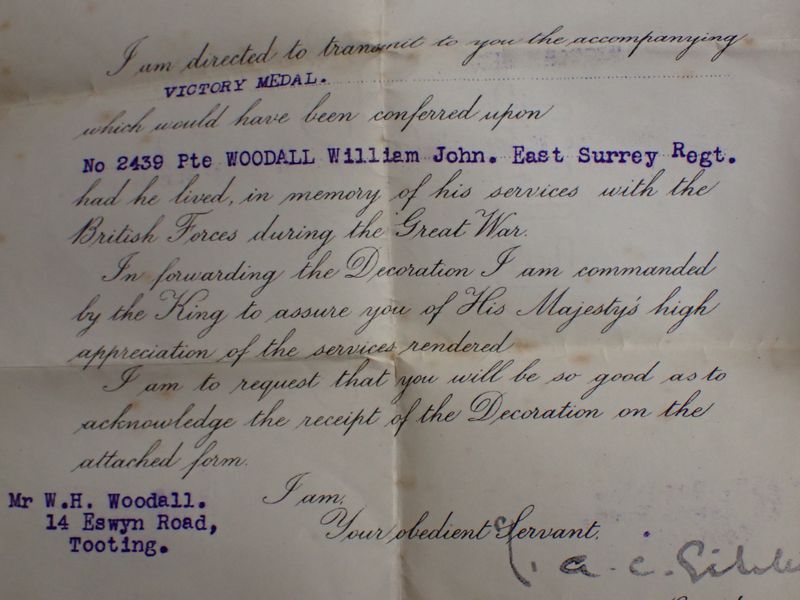 I am directed to transmit to you the accompanying
VICTORY MEDAL.
which would have been conferred upon
No 2439 Pte WOODALL William John. East Surrey Regt.
had he lived, in memory of his services with the
British Forces during the Great War.
In forwarding the Decoration I am commanded
by the King to assure you of His Majesty's high
appreciation of the services rendered
I am to request that you will be so good as to
acknowledge the receipt of the Decoration on the
attached form.
I am,
Your obedient Servant.
Mr W.H. Woodall.
14 Eswyn Road,
Tooting.
a. c.